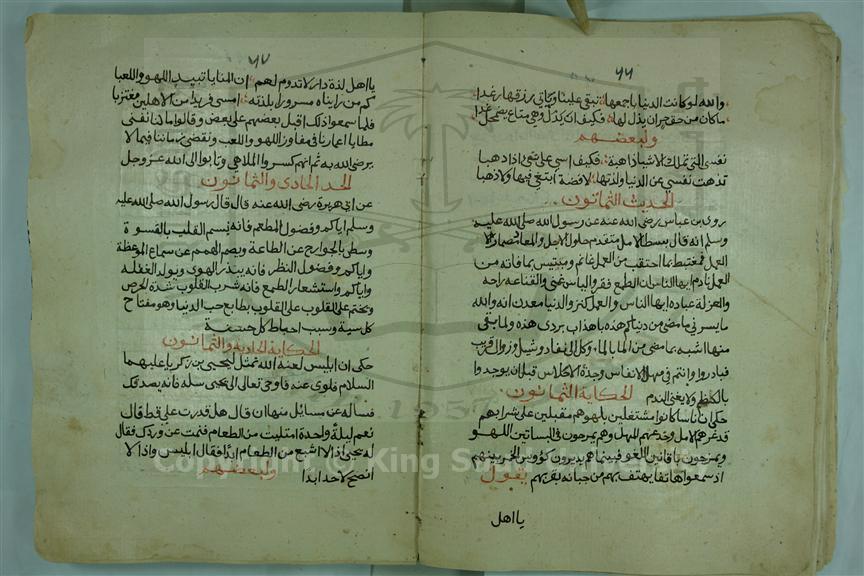 ٦٦
والله لو كانت الدنيا باجمعها تبقى علينا وياتي رزقها رغدا
ما كان من حق حر ان يذل لها فكيف ان يذل وهي متاع يضمحل غدا
ولبعضهم
نفسي التي تملك الاشيا ذاهبة فكيف اسى على شي اذا ذهبا
ذهبت نفسي عن الدنيا ولذتها لا فضة ابتغى فيها ولا ذهبا
الحديث الثمانون
روى بن عباس رضى الله عنه عن رسول الله صلى الله عليه
وسلم انه قال بسط الامل متقدم حلول الاجل والمعاد مضمار
العمل فمغتبط بما احتقب من العمل غانم ومبتيس بما فاته من
العمل نادم ايها الناس ان الطمع فقر والياس غنى والقناعه راحه
والعزلة عباده ايها الناس والعمل كنز والدنيا معدن انه والله
ما يسرني ما مضى من دنياكم هذه باهداب بردى هذه ولما بقى
منها اشبه بما مضى من الما بالما وكل الى نفاد وشيك وزوال قريب
فبادروا وانتم في مهل الانفاس وجدة الاحلاس قبل ان يوخذوا
بالكظم ولا يغنى الندم الحكاية الثمانون
حكى ان ناسا كانوا مشتغلين بلهوهم مقبلين على شرابهم
قد غرهم الامل وخدعهم المهل وهم يمرحون في البساتين اللهو
ويمرحون بافانين اللغو فبينما هم يديرون كؤوس الخمر بينهم
اذ سمعوا هاتفا يهتف بهم من جبانه بقربهم يقول
يا اهل
٦٧
يا اهل لذة دار لا تدوم لهم ان المنايا تبيد اللهو واللعبا
كم من رايناه مسرورا بلذته امسى فريدا من الاهلين مغتربا
فلما سمعوا ذلك اقبل بعضهم على بعض وقالوا مالنا نفنى
مطايا اعمارنا في مفاوز اللهو واللعب ونقضى زماننا فيما لا
يرضى الله به ثم انهم كسروا الملاهى وتابوا الى الله عز وجل
الحد الحادى والثمانون
عن ابي هريرة رضى الله عنه قال قال رسول الله صلى الله عليه
وسلم اياكم وفضول المطعم فانه يسم القلب بالقسوة
وسطى بالجوارح عن الطاعة ويصم الهمم عن سماع الموعظة
واياكم وفضول النظر فانه يبذر الهوى ويولد الغفلة
واياكم واستشعار الطمع فانه يشرب القلوب شدة الحرص
ويختم على القلوب بطابع حب الدنيا وهو مفتاح
كل سية وسبب احباط كل حسنة
الحكاية الحادية والثمانون
حكى ان ابليس لعنه الله تمثل ليحيى بن زكريا عليهما
السلام فلوى عنه فاوحى تعالى الى يحيى سله فانه يصدقك
فساله عن مسائل منها ان قال هل قدرت علي قط قال
نعم ليلة واحدة امتليت من الطعام فنمت عن وردك فقال
له يحيى اذا لا اشبع من الطعام ابدا فقال ابليس واذا لا
انصح لاحد ابدا ولبعضهم
Copyright © King Saud University
1957